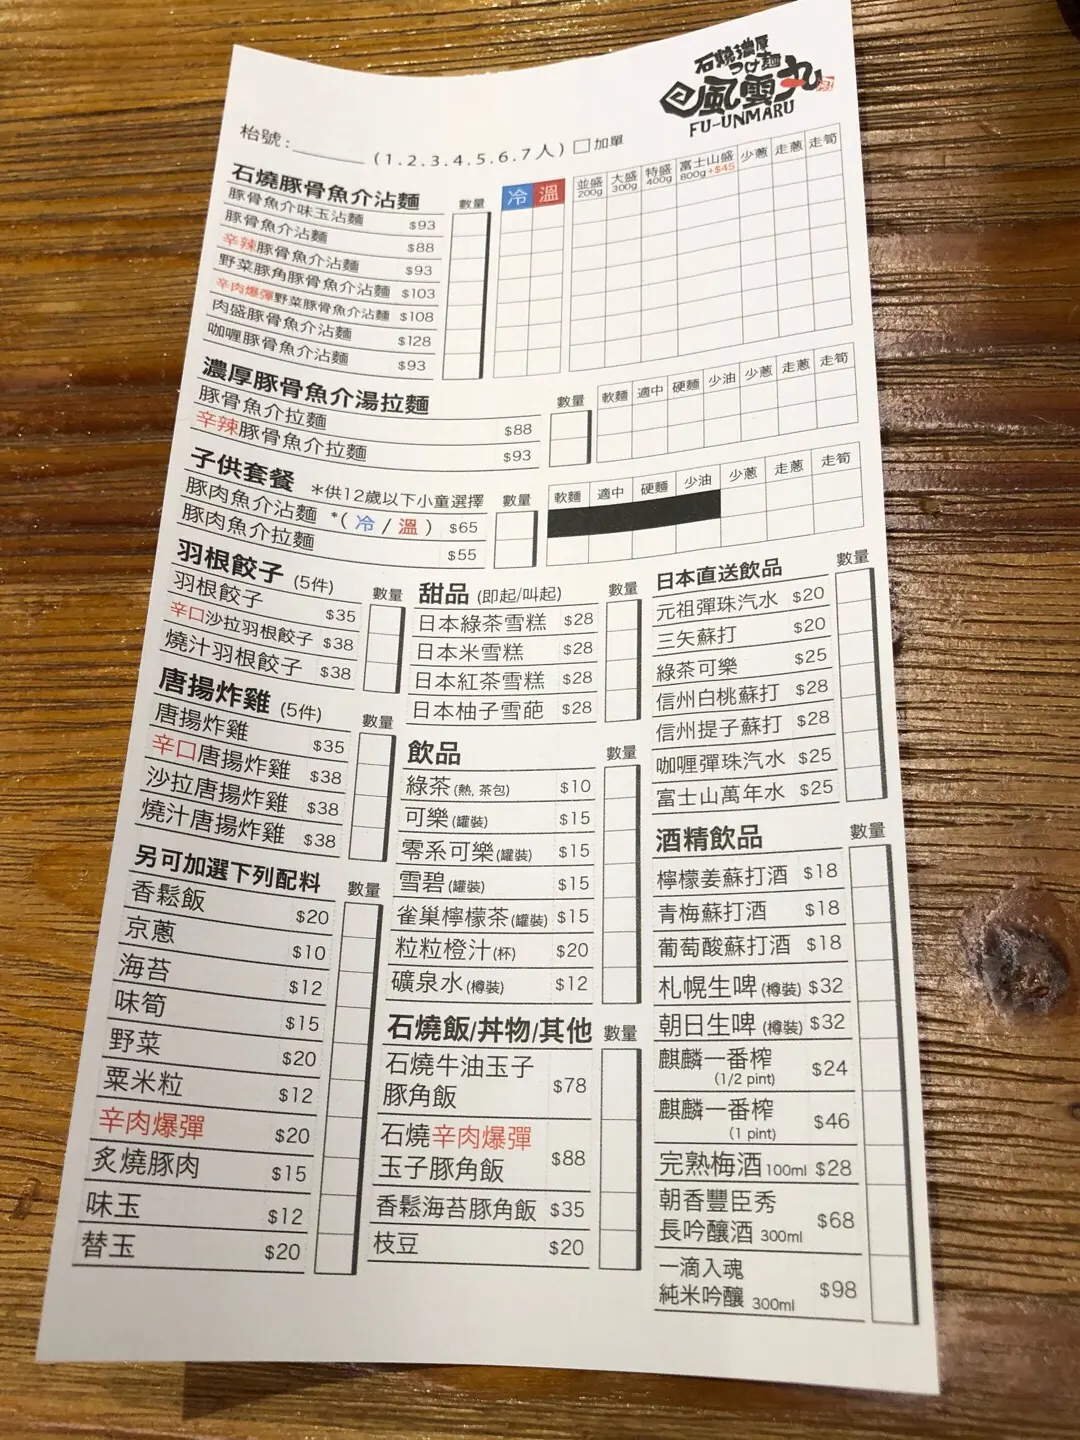 石燒濃厚
つけ麺
風雲丸
FU-UNMARU
枱號:________ (1.2.3.4.5.6.7人) □加單
石燒豚骨魚介沾麵 數量 冷 溫 並盛200g 大盛300g 特盛400g 富士山盛800g+$45 少蔥 走蔥 走筍
豚骨魚介味玉沾麵 $93
豚骨魚介沾麵 $88
辛辣豚骨魚介沾麵 $93
野菜豚角豚骨魚介沾麵 $103
辛肉爆彈野菜豚骨魚介沾麵 $108
肉盛豚骨魚介沾麵 $128
咖喱豚骨魚介沾麵 $93
濃厚豚骨魚介湯拉麵 數量 軟麵 適中 硬麵 少油 少蔥 走蔥 走筍
豚骨魚介拉麵 $88
辛辣豚骨魚介拉麵 $93
子供套餐 *供12歲以下小童選擇 數量 軟麵 適中 硬麵 少油 少蔥 走蔥 走筍
豚肉魚介沾麵 *( 冷 / 溫 ) $65
豚肉魚介拉麵 $55
羽根餃子 (5件) 數量
羽根餃子 $35
辛口沙拉羽根餃子 $38
燒汁羽根餃子 $38
唐揚炸雞 (5件) 數量
唐揚炸雞 $35
辛口唐揚炸雞 $38
沙拉唐揚炸雞 $38
燒汁唐揚炸雞 $38
另可加選下列配料 數量
香鬆飯 $20
京蔥 $10
海苔 $12
味筍 $15
野菜 $20
粟米粒 $12
辛肉爆彈 $20
炙燒豚肉 $15
味玉 $12
替玉 $20
甜品 (即起/叫起) 數量
日本綠茶雪糕 $28
日本米雪糕 $28
日本紅茶雪糕 $28
日本柚子雪葩 $28
飲品 數量
綠茶(熱, 茶包) $10
可樂(罐裝) $15
零系可樂(罐裝) $15
雪碧(罐裝) $15
雀巢檸檬茶(罐裝) $15
粒粒橙汁(杯) $20
礦泉水(樽裝) $12
石燒飯/丼物/其他 數量
石燒牛油玉子
豚角飯 $78
石燒辛肉爆彈
玉子豚角飯 $88
香鬆海苔豚角飯 $35
枝豆 $20
日本直送飲品 數量
元祖彈珠汽水 $20
三矢蘇打 $20
綠茶可樂 $25
信州白桃蘇打 $28
信州提子蘇打 $28
咖喱彈珠汽水 $25
富士山萬年水 $25
酒精飲品 數量
檸檬姜蘇打酒 $18
青梅蘇打酒 $18
葡萄酸蘇打酒 $18
札幌生啤(樽裝) $32
朝日生啤(樽裝) $32
麒麟一番榨
(1/2 pint) $24
麒麟一番榨
(1 pint) $46
完熟梅酒100ml $28
朝香豐臣秀
長吟釀酒 300ml $68
一滴入魂
純米吟釀 300ml $98